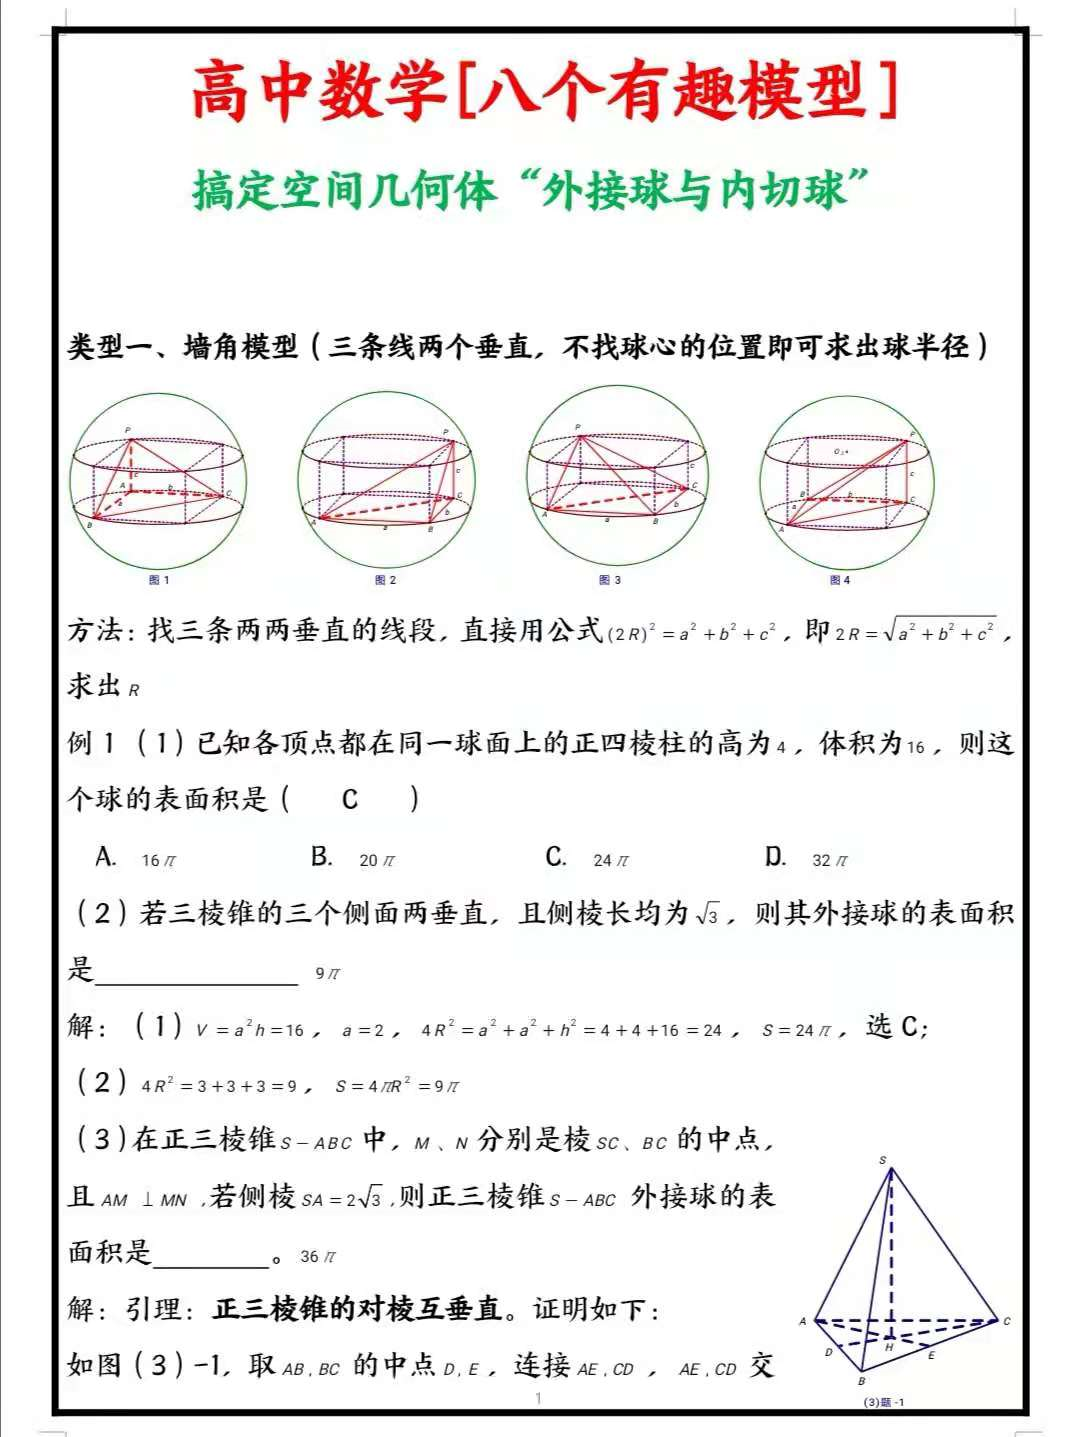 高中数学[八个有趣模型]
搞定空间几何体“外接球与内切球”
类型一、墙角模型(三条线两个垂直，不找球心的位置即可求出球半径)
P A b c a B C
图1
P c C b A a B
图2
P c C b A a B
图3
P O₂ c B b C a A
图4
方法：找三条两两垂直的线段，直接用公式(2R)²=a²+b²+c²，即2R=√(a²+b²+c²)，
求出R
例1 (1)已知各顶点都在同一球面上的正四棱柱的高为4，体积为16，则这
个球的表面积是( C )
A. 16π B. 20π C. 24π D. 32π
(2)若三棱锥的三个侧面两垂直，且侧棱长均为√3，则其外接球的表面积
是______________ 9π
解：(1)V=a²h=16，a=2，4R²=a²+a²+h²=4+4+16=24，S=24π，选C;
(2)4R²=3+3+3=9，S=4πR²=9π
(3)在正三棱锥S-ABC中，M、N分别是棱SC、BC的中点，
且AM⊥MN,若侧棱SA=2√3,则正三棱锥S-ABC外接球的表
面积是________。36π
解：引理：正三棱锥的对棱互垂直。证明如下：
如图(3)-1，取AB,BC的中点D,E，连接AE,CD，AE,CD交
S A C D H E B
(3)题-1
1